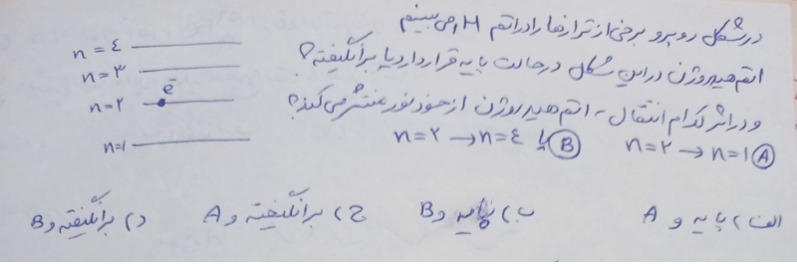 در شکل روبرو برخی از ترازها را در اتم H می‌بینیم
اتم هیدروژن در این شکل در حالت پایه قرار دارد یا برانگیخته؟
و در اثر کدام انتقال، اتم هیدروژن از خود نور منتشر می‌کند؟
n=۲ → n=۱ (A) یا (B) n=۲ → n=٤
n=٤
n=۳
n=۲ ē
n=۱
الف) پایه و A ب) پایه و B ج) برانگیخته و A د) برانگیخته و B